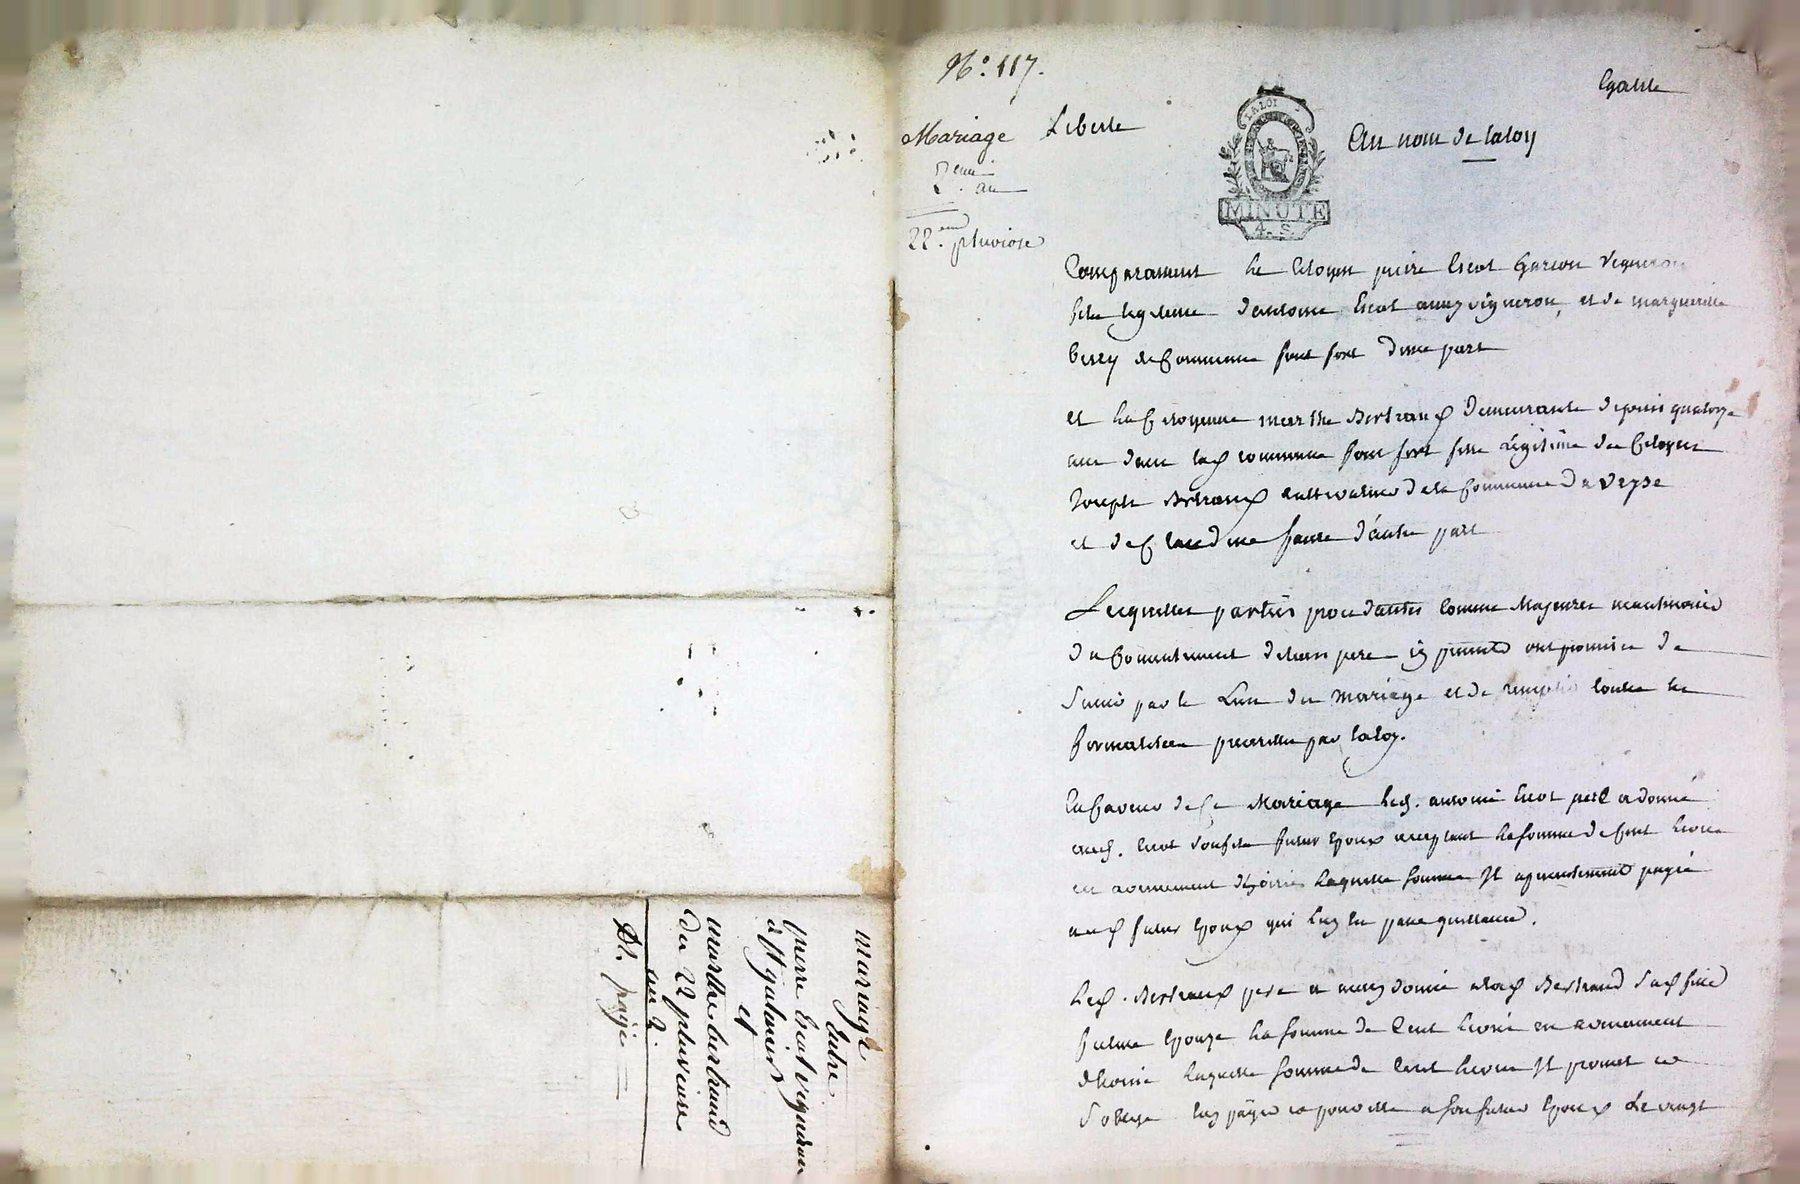 N.º 117.
Egalite
Mariage
Liberte
LA LOI
Au nom de la loy
2.eme an
MINUTE
4. S.
22.eme pluviose
Comparaissent le Citoyen pierre Escot Garcon Vigneron
fils legitime d'antoine Escot aussy vigneron, et de marguerite
de Commune font fort d'une part
et la Citoyenne marthe Bertrand demeurante depuis quatorze
ans dans lad commune font fort fille légitime du Citoyen
Joseph Bertrand cultivateur de la Commune de
et de Claudine d'autre part
Lesquelles parties procedantes comme Majeures neantmoins
du Consentement de leurs pere ont promis de
S'unir par le Lien du Mariage et de remplir toutes les
formalitées prescrittes par la loy.
En faveur de Ce Mariage led. antoine Escot pere a donné
aud. Escot son fils futur Epoux acceptant la somme de Cent livres
en avancement d'hoirie laquelle somme Il a presentement payée
aud futur Epoux qui luy en passe quittance.
Led. Bertrand pere a aussy donné a lad Bertrand sad fille
future Epouze la somme de Cent livres en avancement
d'hoirie laquelle somme de Cent livres Il promet et
S'oblige luy payer et a son futur Epoux le vingt
mariage
Entre
pierre Escot vigneron
à St galmier
et
marthe bertrand
du 22 pluviose
an 2.
Dt. payé